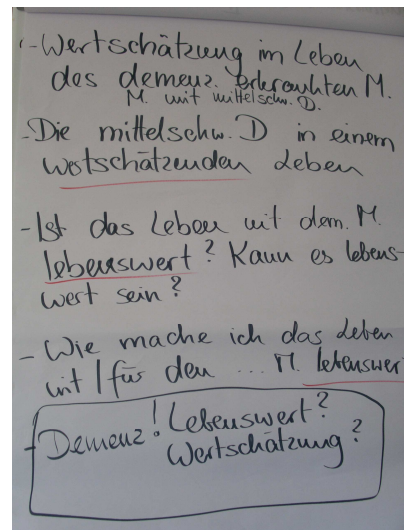 - Wertschätzung im Leben
des demenz. erkrankten M.
M. mit mittelschw. D.
- Die mittelschw. D in einem
wertschätzenden Leben
- Ist das Leben mit dem. M.
lebenswert? Kann es lebens-
wert sein?
- Wie mache ich das Leben
mit / für den ... M. lebenswer
- Demenz! Lebenswert?
Wertschätzung?